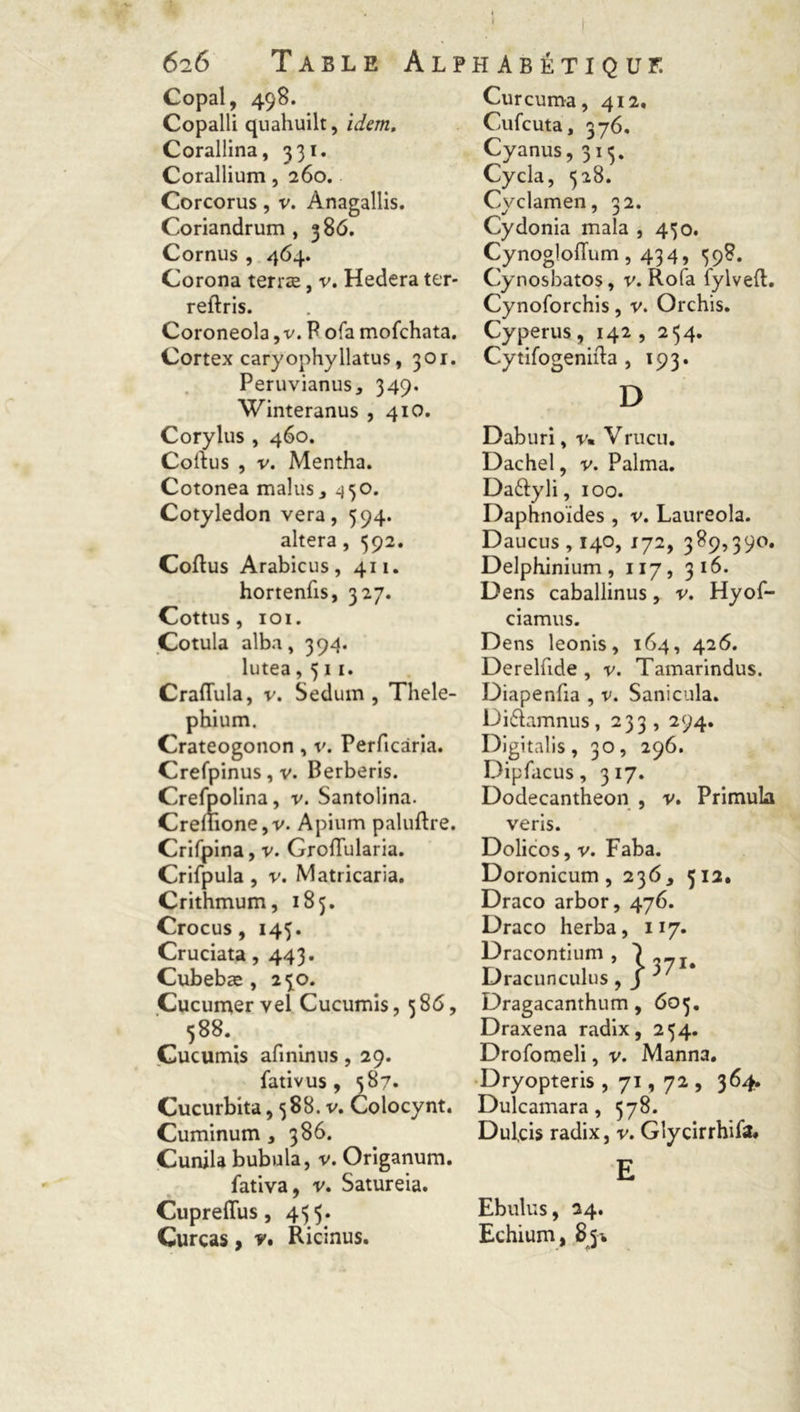 626 TABLE ALPHABÉTIQUE.
Copal, 498.
Copalli quahuilt, idem.
Corallina, 331.
Corallium, 260.
Corcorus, v. Anagallis.
Coriandrum, 386.
Cornus, 464.
Corona terræ, v. Hedera ter-
reſtris.
Coroneola, v. Roſa moſchata.
Cortex caryophyllatus, 301.
Peruvianus, 349.
Winteranus, 410.
Corylus, 460.
Coſtus, v. Mentha.
Cotonea malus, 450.
Cotyledon vera, 594.
altera, 592.
Coſtus Arabicus, 411.
hortenſis, 327.
Cottus, 101.
Cotula alba, 394.
lutea, 511.
Craſſula, v. Sedum, Thele-
phium.
Crateogonon, v. Perſicaria.
Creſpinus, v. Berberis.
Creſpolina, v. Santolina.
Creſſione, v. Apium paluſtre.
Criſpina, v. Groſſularia.
Criſpula, v. Matricaria.
Crithmum, 185.
Crocus, 145.
Cruciata, 443.
Cubebæ, 250.
Cucumer vel Cucumis, 586,
588.
Cucumis aſininus, 29.
ſativus, 587.
Cucurbita, 588. v. Colocynt.
Cuminum, 386.
Cunila bubula, v. Origanum.
ſativa, v. Satureia.
Cupreſſus, 455.
Curcas, v. Ricinus.
Curcuma, 412.
Cuſcuta, 376.
Cyanus, 315.
Cycla, 528.
Cyclamen, 32.
Cydonia mala, 450.
Cynogloſſum, 434, 598.
Cynosbatos, v. Roſa ſylveſt.
Cynoſorchis, v. Orchis.
Cyperus, 142, 254.
Cytiſogeniſta, 193.
D
Daburi, v. Vrucu.
Dachel, v. Palma.
Dactyli, 100.
Daphnoïdes, v. Laureola.
Daucus, 140, 172, 389, 390.
Delphinium, 117, 316.
Dens caballinus, v. Hyoſ-
ciamus.
Dens leonis, 164, 426.
Derelſide, v. Tamarindus.
Diapenſia, v. Sanicula.
Dictamnus, 233, 294.
Digitalis, 30, 296.
Dipſacus, 317.
Dodecantheon, v. Primula
veris.
Dolicos, v. Faba.
Doronicum, 236, 512.
Draco arbor, 476.
Draco herba, 117.
Dracontium, } 371.
Dracunculus, }
Dragacanthum, 605.
Draxena radix, 254.
Droſomeli, v. Manna.
Dryopteris, 71, 72, 364.
Dulcamara, 578.
Dulcis radix, v. Glycirrhiſa.
E
Ebulus, 24.
Echium, 85.